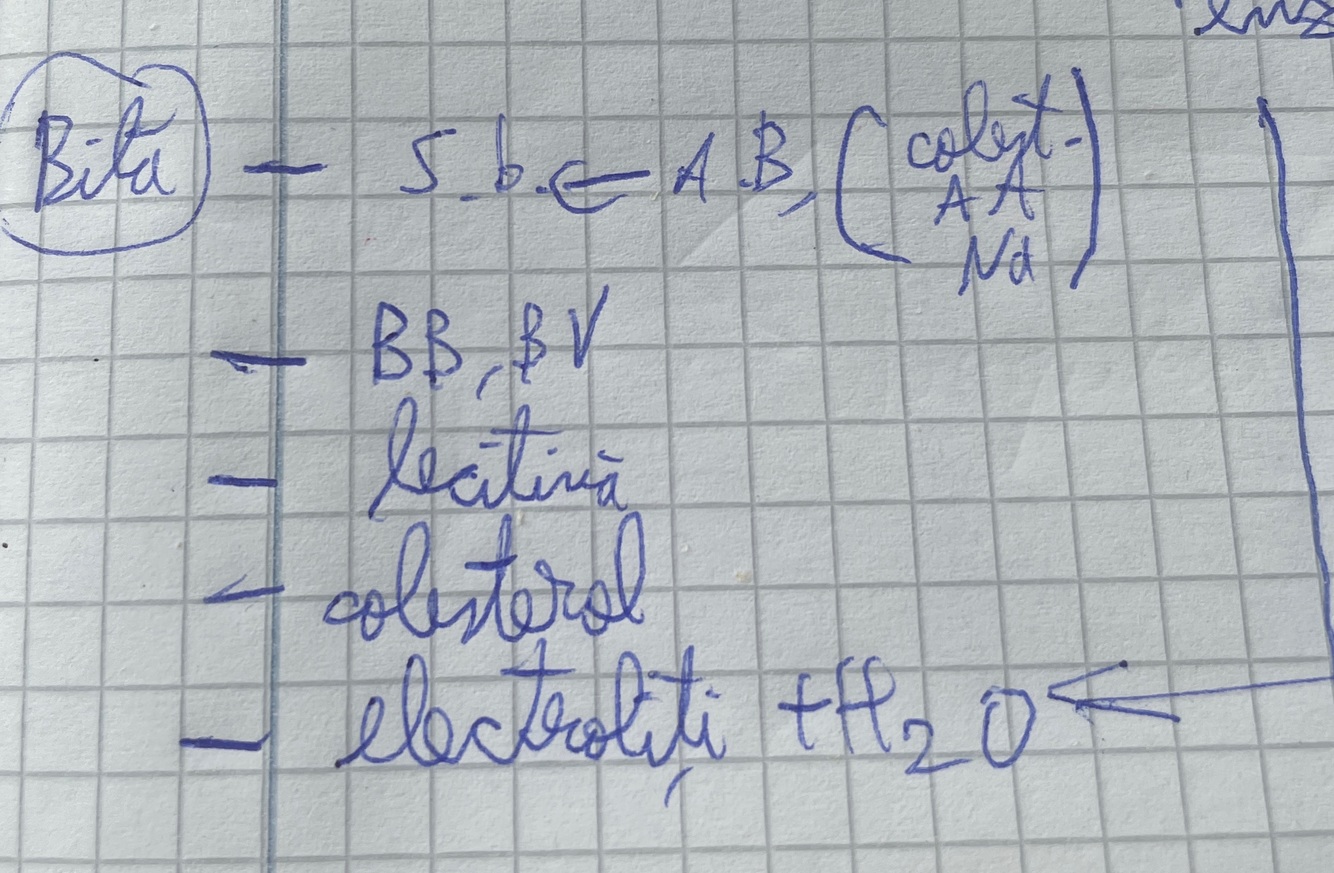 Bila – S.b. ← A.B, (colest.
A A
Na)
– BB, BV
– lecitină
– colesterol
– electroliți + H₂O ←